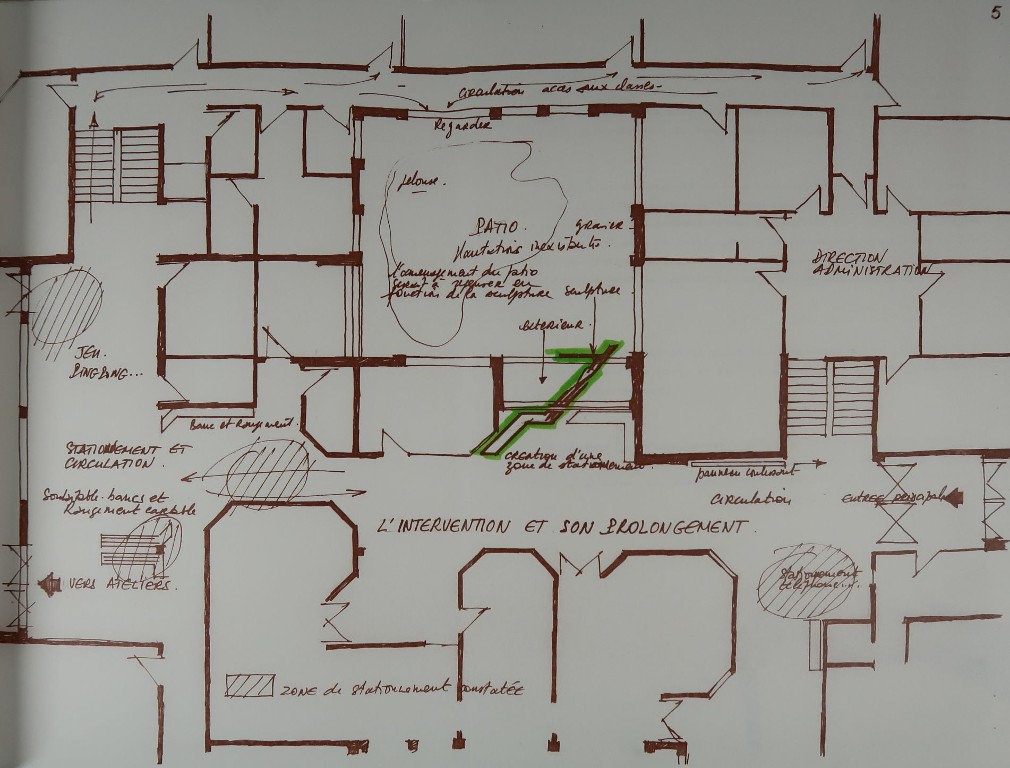 5
Circulation acces aux classes-
Regarder
pelouse.
PATIO.
gravier
Plantations inexistantes.
L'amenagement du patio
serait à repenser en
fonction de la sculpture
sculpture
exterieur.
DIRECTION
ADMINISTRATION
JEU.
PING PONG...
Banc et Rangement.
STATIONNEMENT ET
CIRCULATION.
creation d'une
zone de stationnement.
panneau coulissant
circulation
ENTREE principale
bancs et
Rangement cartable
L'INTERVENTION ET SON PROLONGEMENT.
VERS ATELIERS.
Stationnement
telephone....
ZONE de stationnement constatée